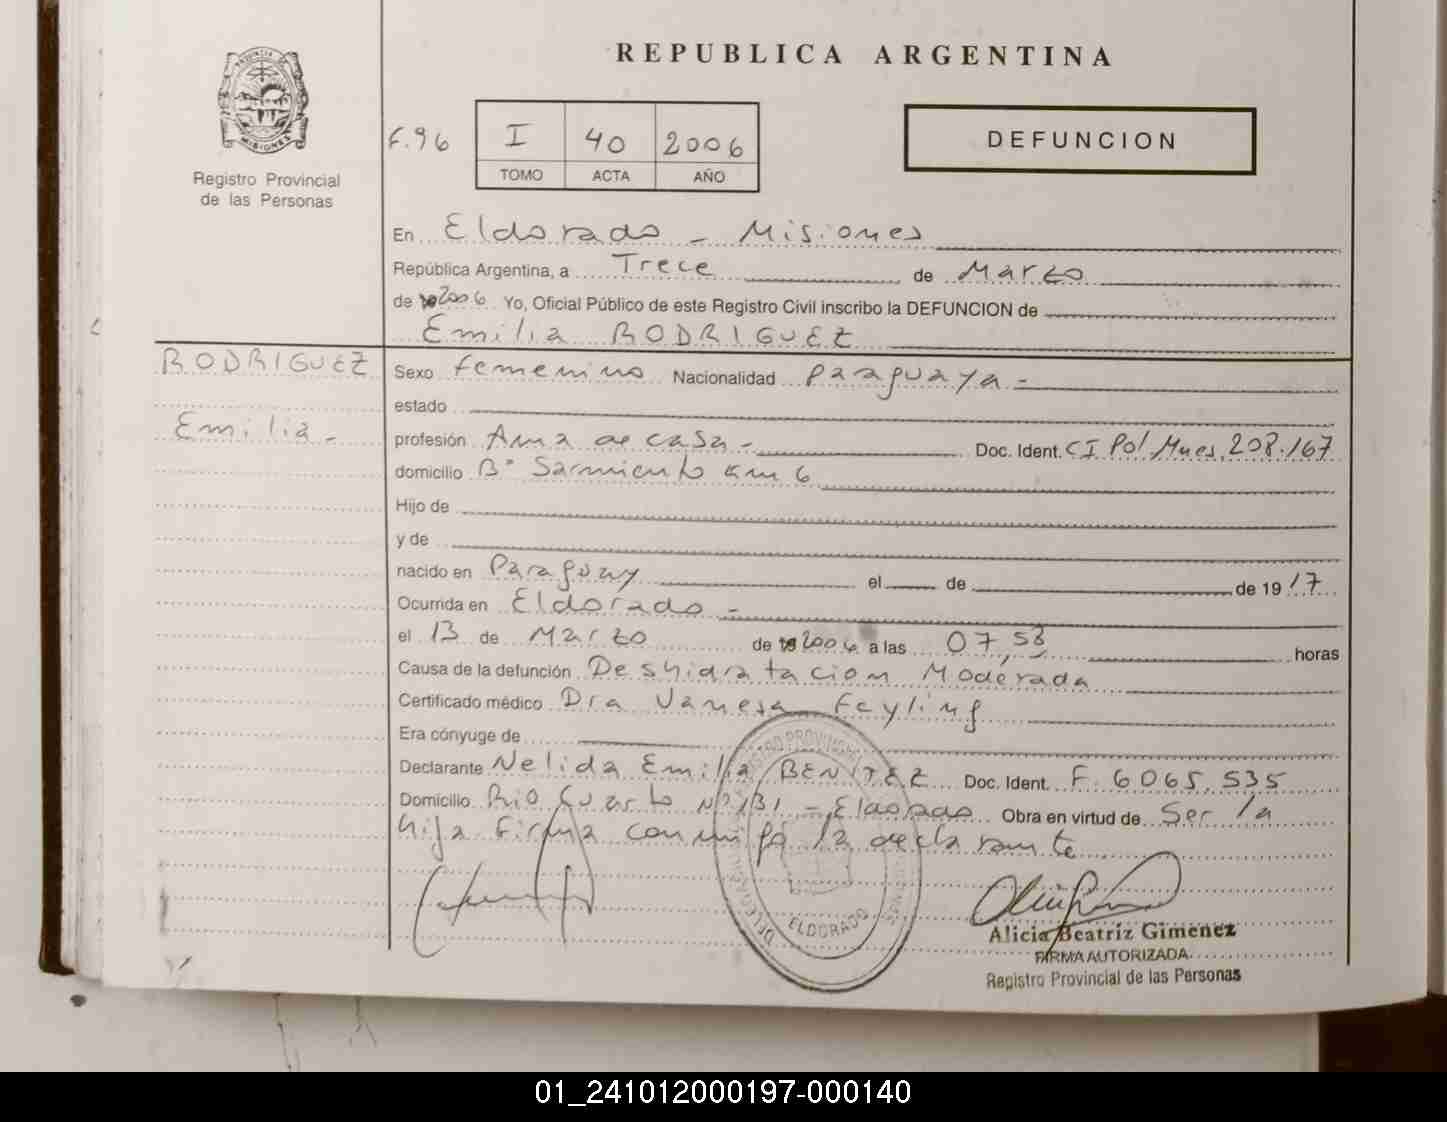 REPUBLICA ARGENTINA
PROVINCIA DE
MISIONES
Registro Provincial
de las Personas
F.96
I 40 2006
TOMO ACTA AÑO
DEFUNCION
En Eldorado - Misiones
República Argentina, a Trece de Marzo
de 2006 Yo, Oficial Público de este Registro Civil inscribo la DEFUNCION de
Emilia RODRIGUEZ
RODRIGUEZ
Emilia -
Sexo femenino Nacionalidad Paraguaya -
estado
profesión Ama de casa - Doc. Ident. CI Pol Mnes 208.167
domicilio B° Sarmiento km 6
Hijo de
y de
nacido en Paraguay el de de 1917
Ocurrida en Eldorado -
el 13 de Marzo de 2006 a las 07,53 horas
Causa de la defunción Deshidratacion Moderada
Certificado médico Dra Vanesa Feyling
Era cónyuge de
Declarante Nelida Emilia BENITEZ Doc. Ident. F. 6065.535
Domicilio Rio Cuarto N° 131 - Eldorado Obra en virtud de Ser la
hija Firma conmigo la declarante
ELDORADO
Alicia Beatriz Gimenez
FIRMA AUTORIZADA
Registro Provincial de las Personas
01_241012000197-000140